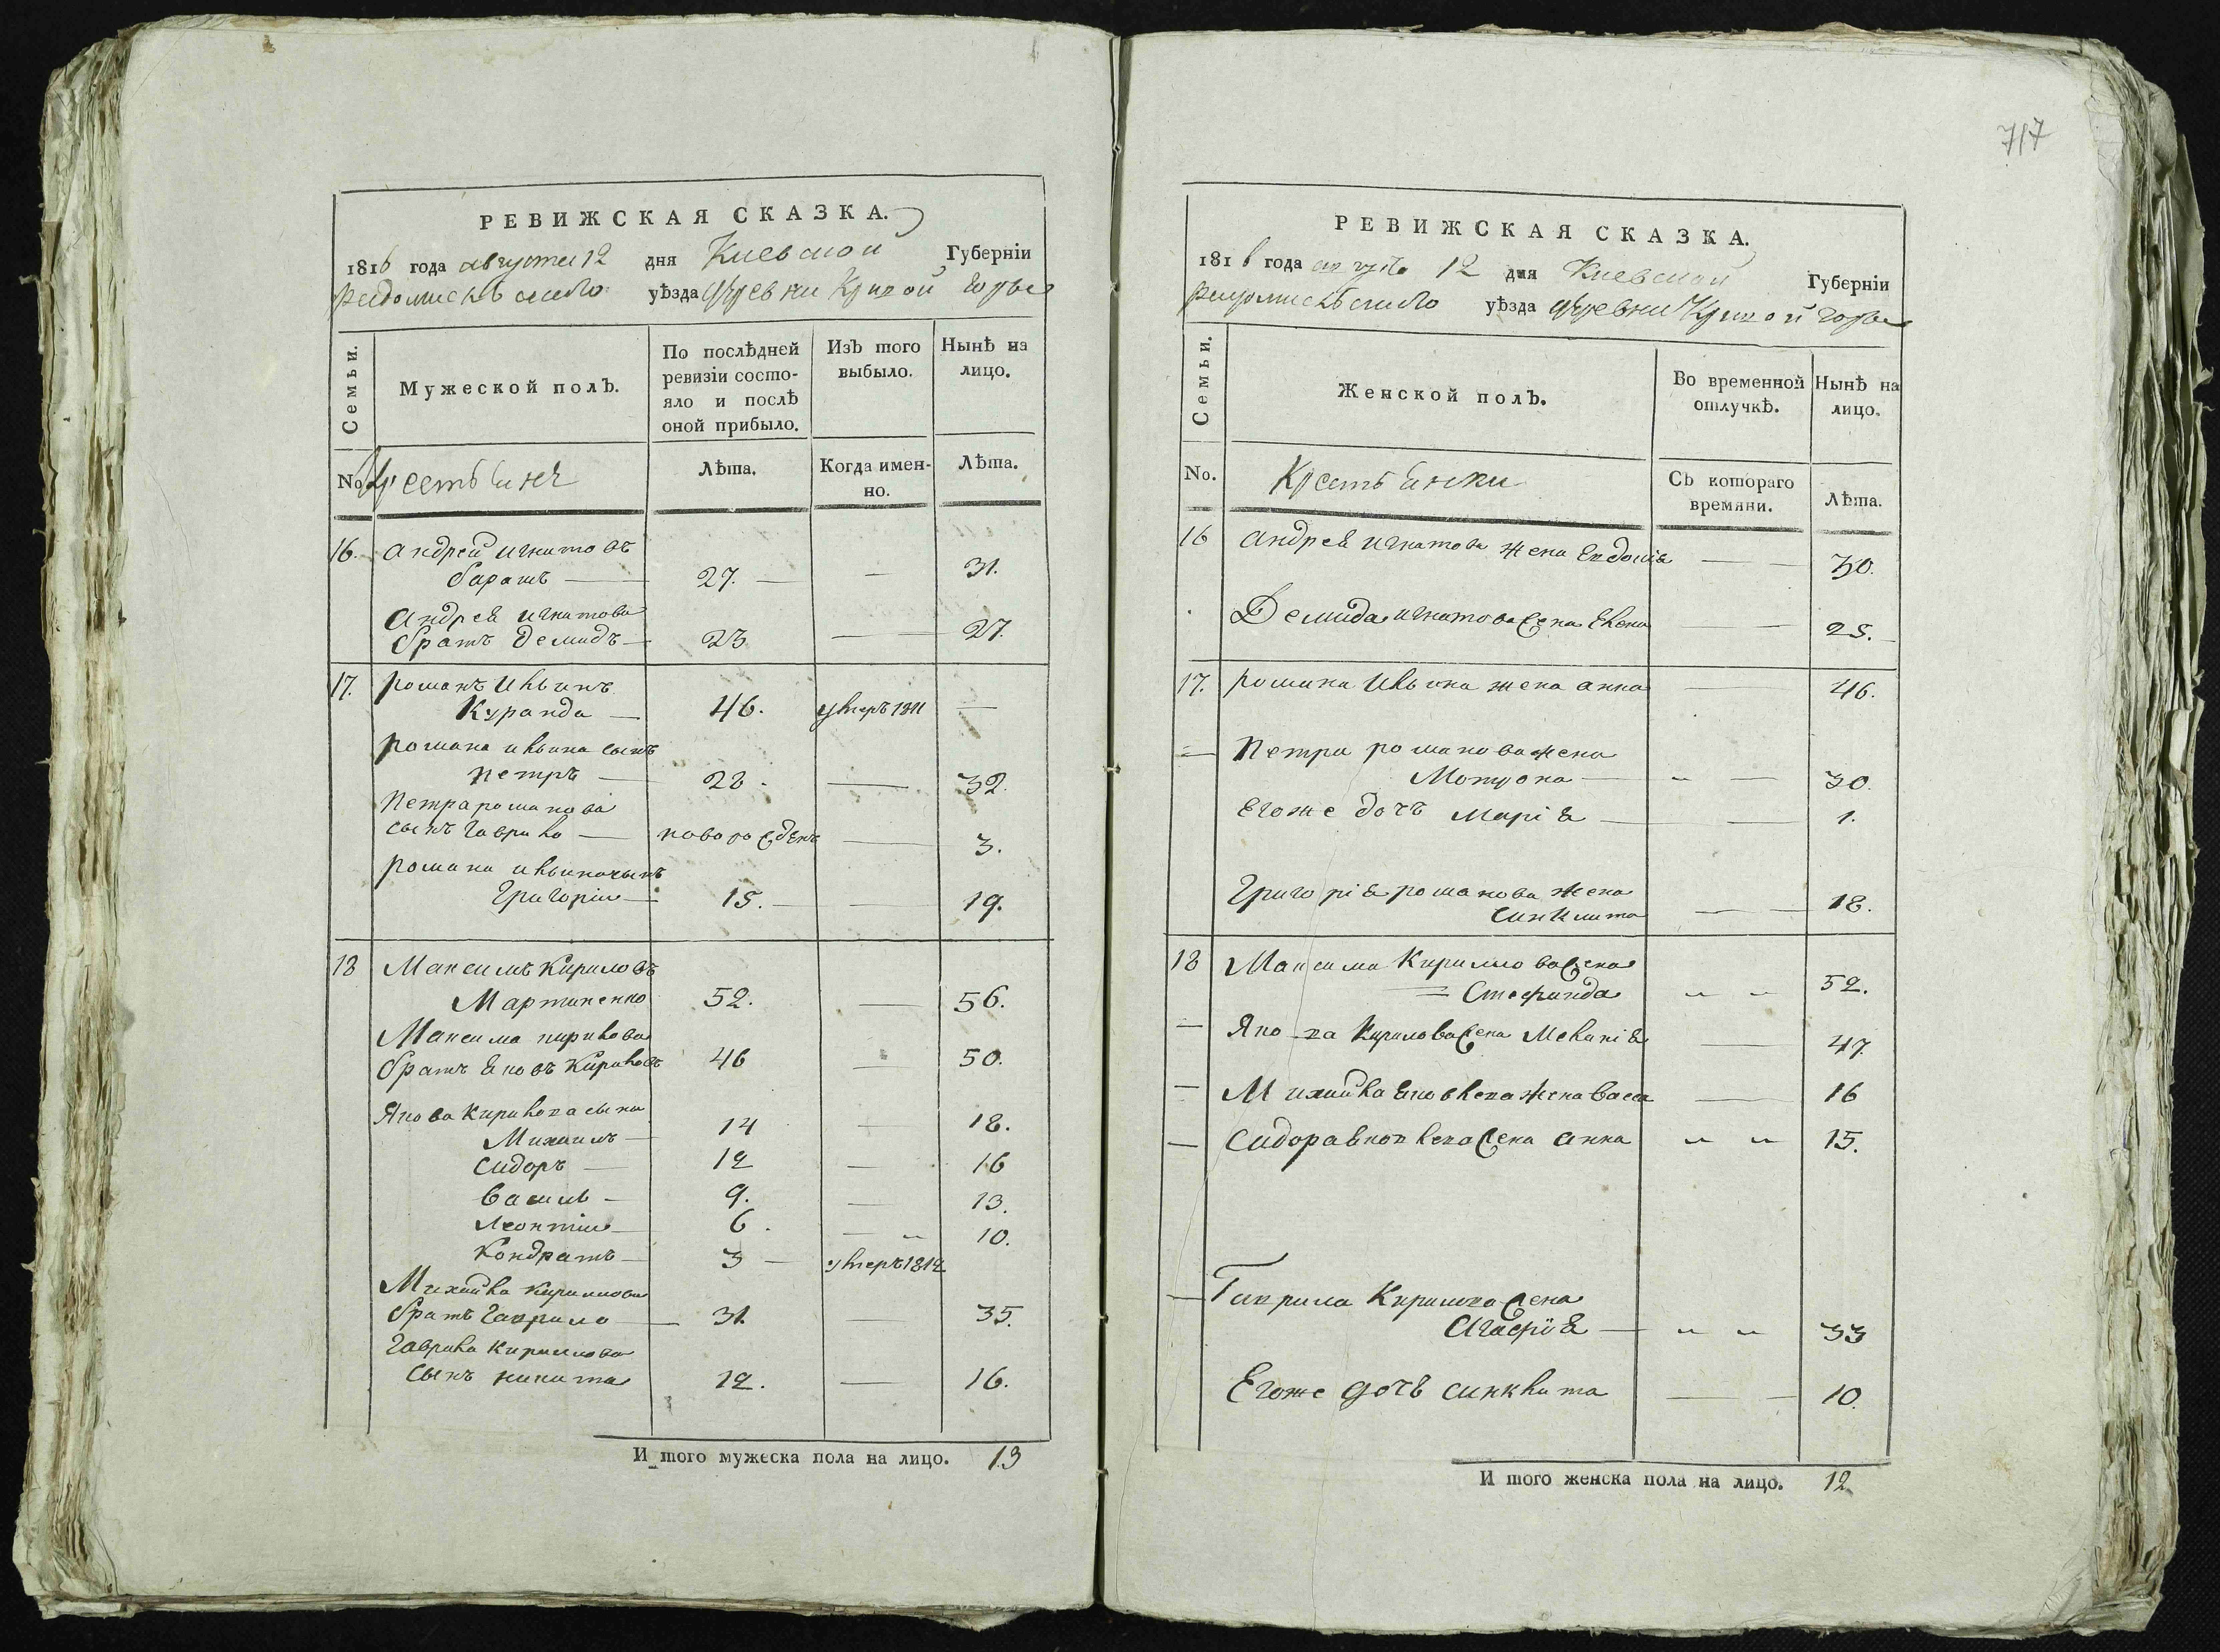 717
РЕВИЖСКАЯ СКАЗКА.
1816 года августа 12 дня Киевской Губерніи
Радомисльского уѣзда деревни Кривой горы
Семьи. Мужеской полъ. По послѣдней ревизіи состояло и послѣ оной прибыло. Изъ того выбыло. Нынѣ на лицо.
No. Крестьяне Лѣта. Когда именно. Лѣта.
16. Андрей игнатовъ
27. — — 31.
Андрея игнатова
братъ демидъ — 23 — 27.
17. романъ ильинъ
Куранда — 46. умеръ 1811 —
романа ильина сынъ
петръ — 28. — 32.
Петра романова
сынъ гаврило — новорожденъ — 3.
романа ильина сынъ
Григорій — 15. — — 19.
18 Максимъ Кириловъ
Мартиненко 52. — 56.
Максима кирилова
братъ яковъ Кириловъ 46 — 50.
Якова Кирилова сыни
Михаилъ — 14 — 18.
сидоръ — 12 — 16
василь — 9. — 13.
леонтій — 6. — 10.
кондратъ — 3 — умеръ 1812
Михаила Кирилова
братъ гаврило — 31. — 35.
гаврила Кирилова
сынъ никита 12. — 16.
И того мужеска пола на лицо. 13
РЕВИЖСКАЯ СКАЗКА.
1816 года августа 12 дня Киевской Губерніи
Радомисльского уѣзда деревни Кривой горы
Семьи. Женской полъ. Во временной отлучкѣ. Нынѣ на лицо.
No. Крестьянки Съ котораго времяни. Лѣта.
16 Андрея игнатова жена Евдокія — — 30.
Демида игнатова жена Елена — 25.
17. романа Ильина жена анна — 46.
— Петра романова жена
Мотрона — „ — 30.
Егоже дочъ Марія — — 1.
Григорія романова жена
синклита — — 18.
18 Максима Кирилова жена
— Стефанида „ „ 52.
— Якова Кирилова жена Меланія — 47.
— Михайла яковлева жена васса — 16
— Сидора яковлева жена анна „ „ 15.
— Гаврила Кирилова жена
Агафія — „ „ 33
Егоже дочъ синклита — — 10.
И того женска пола на лицо. 12